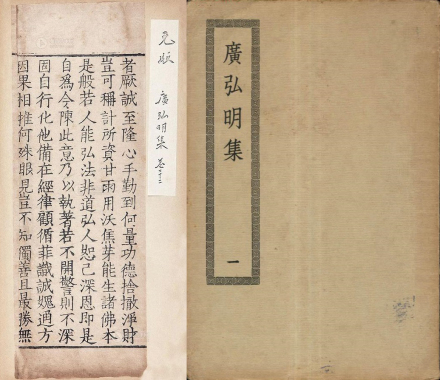 廣弘明集
一
元版
廣弘明集 卷二十二
者厥誠至隆心手勤到何量功德捨撤淨財
豈可稱計所資甘雨用沃焦芽能生諸佛本
是般若人能弘法非道弘人恕己深恩即是
自爲令陳此意乃以執著若不開警則不深
因自行化他備在經律顧循菲識誠媿通方
因果相推何殊眼見豈不知獨善且最勝無